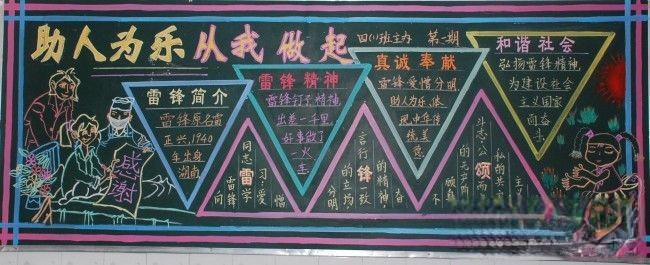 助人为乐从我做起
四(1)班主办 第一期
雷锋简介
雷锋原名雷
正兴,1940
年出身
湖南
雷锋精神
雷锋行元精神
出差一千里
好事做了
一火
车
真诚奉献
雷锋爱憎分明
助人为乐,体
现中华传
统美
德
和谐社会
弘扬雷锋精神
为建设社会
主义国家
而奋
斗
感谢
向雷锋同志雷学习:爱憎
分明的立场,言行锋一致的精神,奋
不顾身的无产阶斗志,公颂而
私的共
主